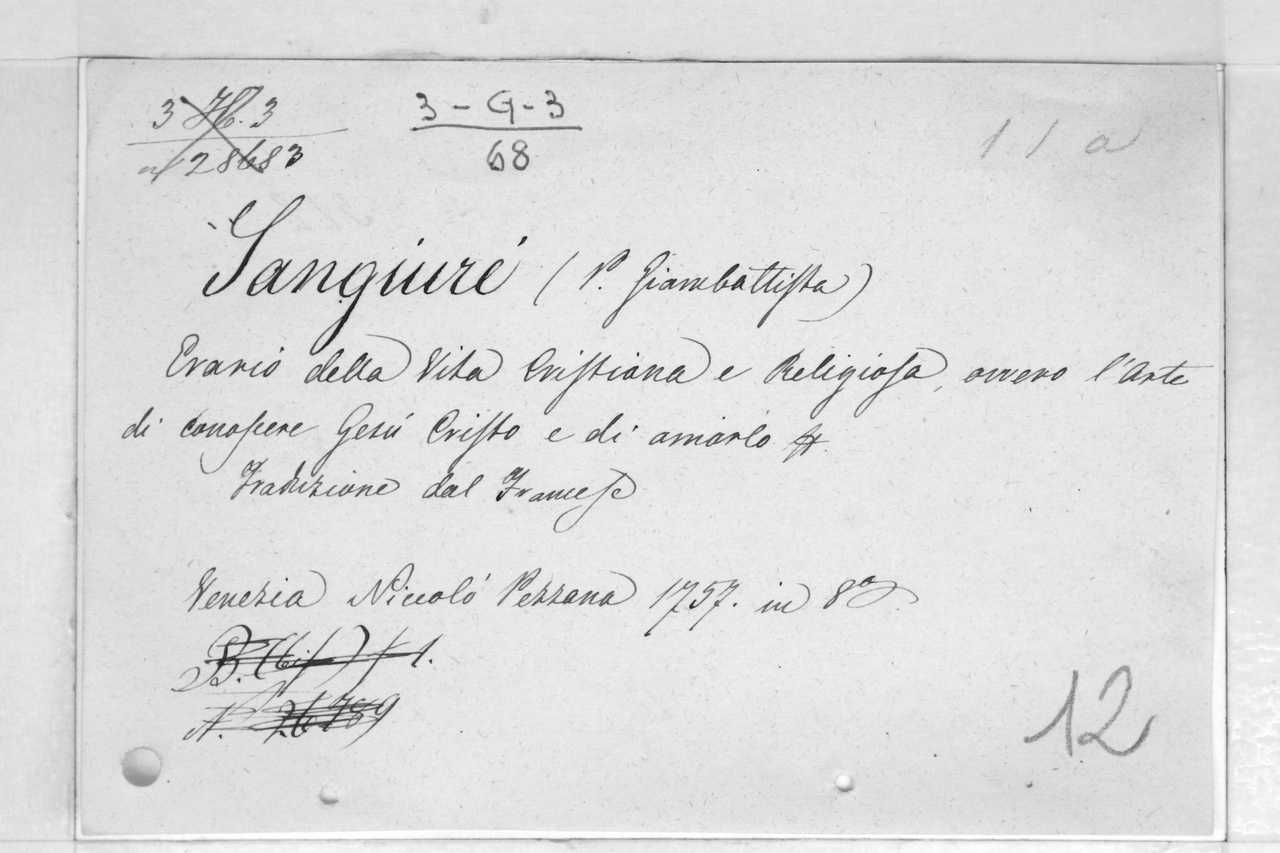 3 3 3-G-3 11 a
n° 28683 68
Sangiuré (P. Giambattista)
Erario della Vita Cristiana e Religiosa, ovvero l'Arte
di conoscere Gesù Cristo e di amarlo
Traduzione dal Francese
Venezia Niccolò Pezzana 1757. in 8°
12